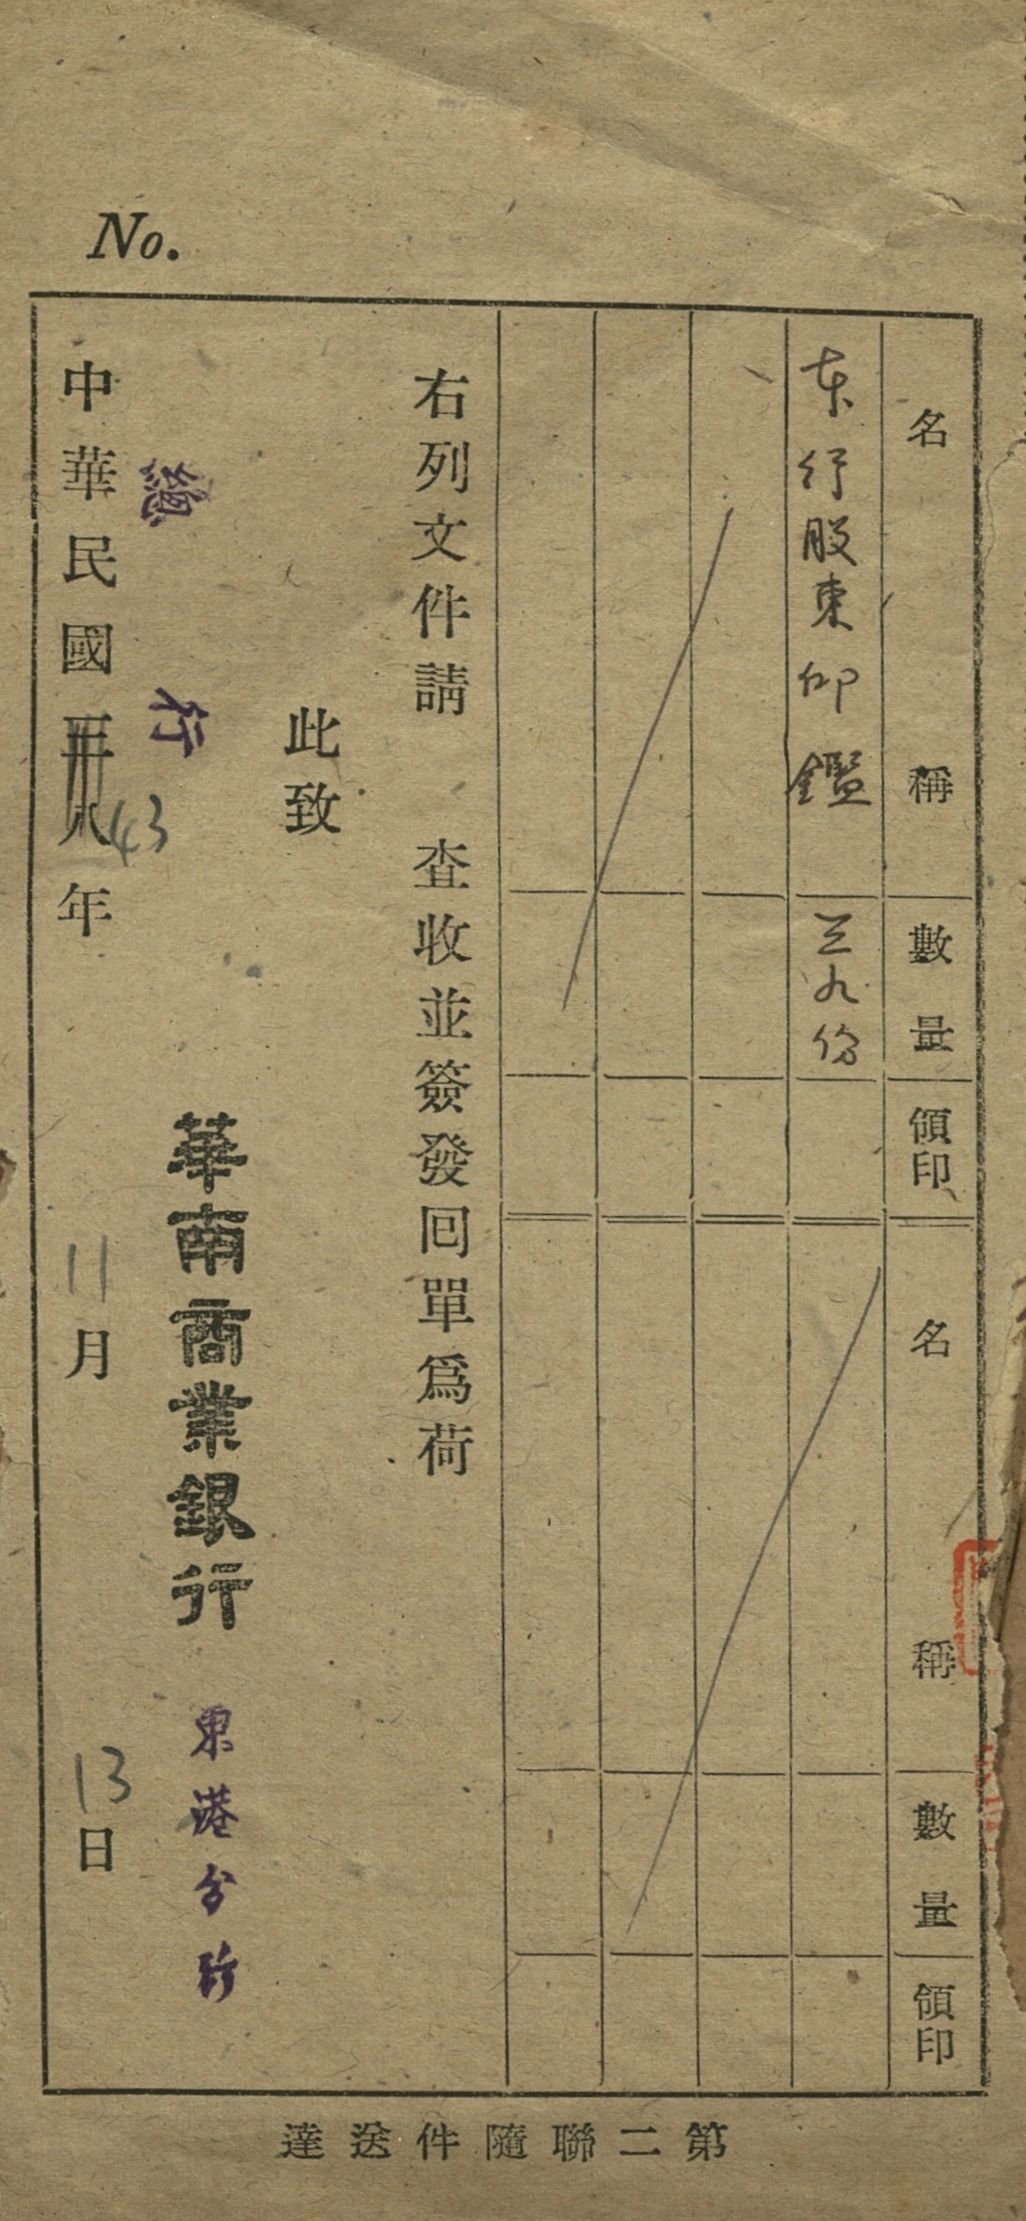 No.
名稱 數量 領印 名稱 數量 領印
本行股東印鑑 三九份
右列文件請 查收並簽發回單爲荷
此致
總行
華南商業銀行 東港分行
中華民國卅八43年 11月 13日
第二聯隨件送達